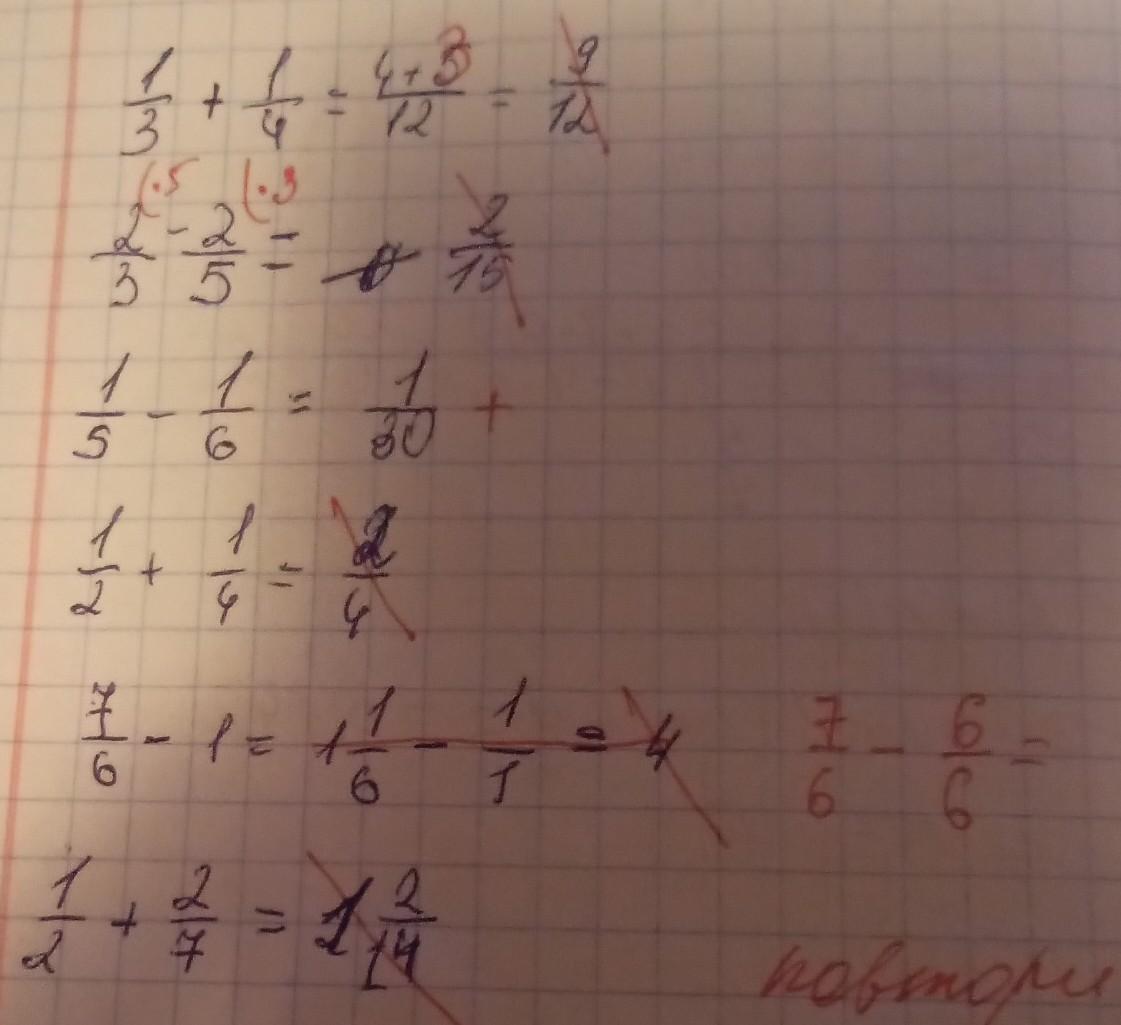 1/3 + 1/4 = 4+3/12 = 9/12
(·5 (·3
2/3 - 2/5 = 2/15
1/5 - 1/6 = 1/30 +
1/2 + 1/4 = 2/4
7/6 - 1 = 1 1/6 - 1/1 = 4 7/6 - 6/6 =
1/2 + 2/7 = 1 2/14
повтори